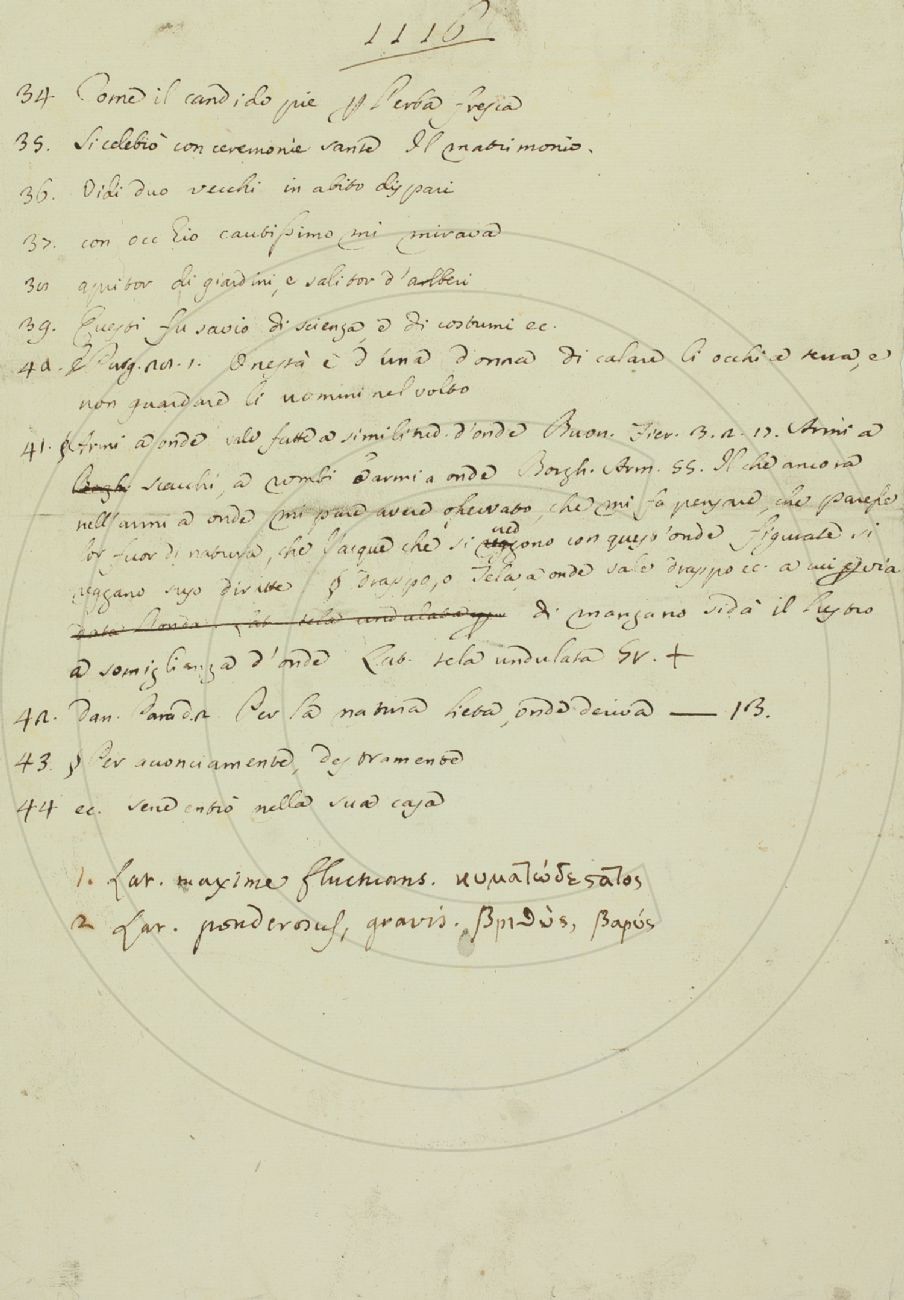 1116
34 Come il candido pie p l'erba fresca
35. Si celebrò con ceremonie sante Il matrimonio.
36. Vidi duo vecchi in abito dispari
37. con occhio cautissimo mi mirava
38 apritor di giardini, e salitor d'alberi
39. Questi fu savio di scienza, e di costumi ec.
40. Purg. 28. 1. Onestà è d'una donna di calare li occhi a terra, e
non guardare li uomini nel volto
41. § Armi a onde vale fatte a similitud. d'onde Buon. Fier. 3. 2. 17. Armi a
Borgh. scacchi, a rombi e armi a onde Borgh. Arm. 55. Il che ancora
nell'armi a onde mi pare avere osservato, che mi fa pensare, che paresse
lor fuor di natura, che l'acque che si ved ono con queste onde figurate si
reggano suso diritte § Drappo, o Tela a onde vale drappo ec. a cui p via
di mangano si dà il lustro
a somiglianza d'onde Lat. tela undulata Gr. +
42. Dan. Parad. 2 Per la natura lieta, onde deriva — 13.
43. § Per acconciamente, destramente
44 ec. sene entrò nella sua casa
1. Lat. maxime fluctuans. κυματώδεςατος
2 Lat. ponderosus, gravis. βριθὺς, βαρύς